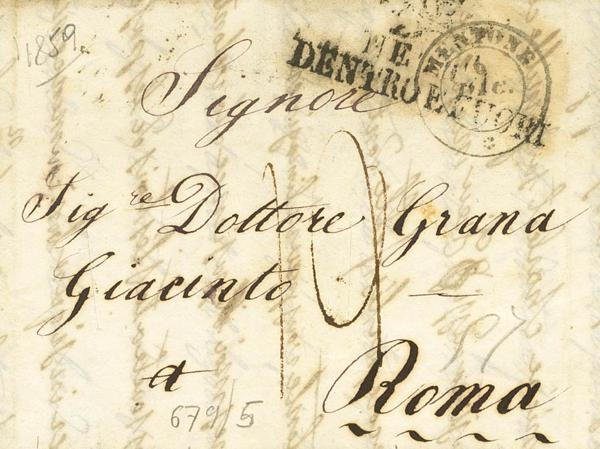 1859
MENTONE
Dic.
DENTRO E FUORI
Signore
Sig.re Dottore Grana
Giacinto
19
a
Roma
679/5